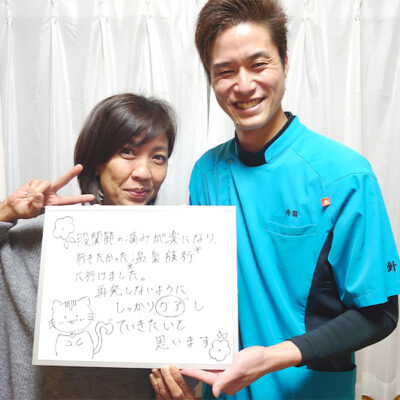 股関節の痛みが楽になり、
行きたかった温泉旅行
に行けました。
再発しないように
しっかりケアし
ていきたいと
思います